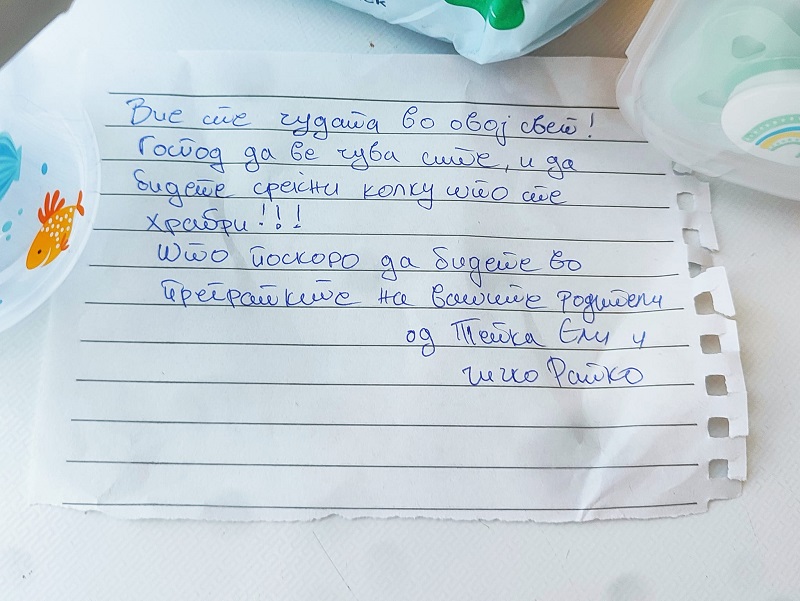 Вие сте чудата во овој свет!
Господ да ве чува сите, и да
бидете среќни колку што сте
храбри!!!
Што поскоро да бидете во
прегратките на вашите родители
од Тетка Ели и
чичко Рајко